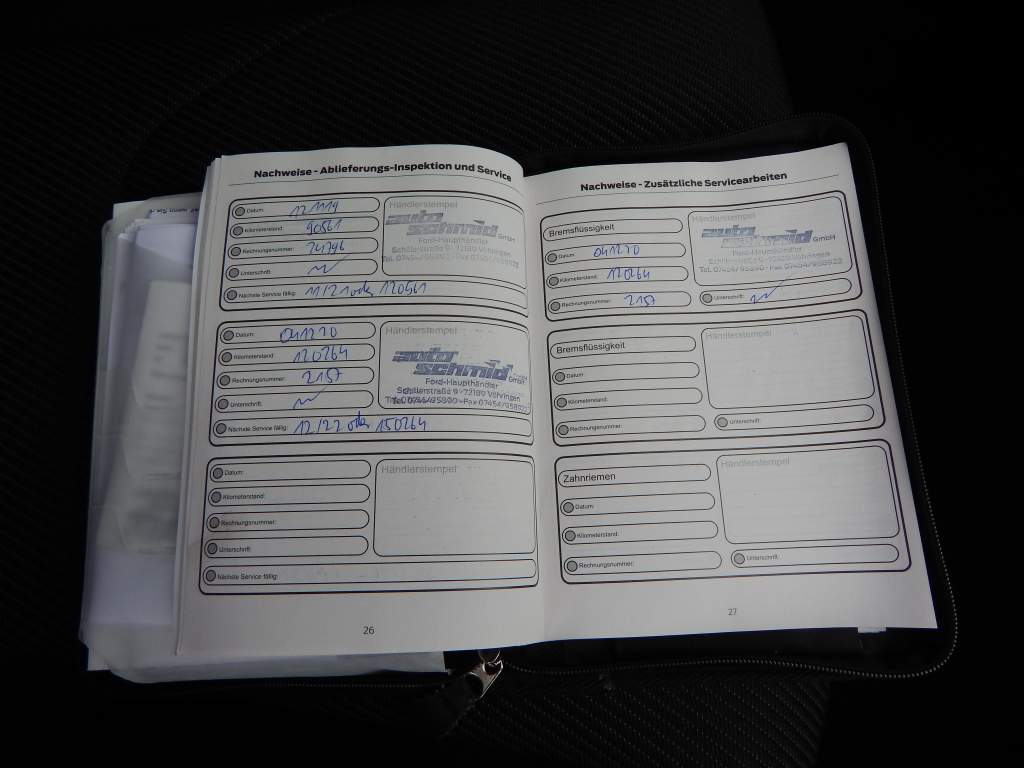 Nachweise - Ablieferungs-Inspektion und Service
Datum: 12/119
Kilometerstand: 90561
Rechnungsnummer: 74796
Unterschrift:
Nächste Service fällig: 11/21 oder 120561
Händlerstempel
auto schmid GmbH
Ford-Haupthändler
Schillerstraße 9 - 72189 Vöhringen
Tel. 07454/95890 - Fax 07454/958922
Datum: 04/220
Kilometerstand: 120264
Rechnungsnummer: 2157
Unterschrift:
Nächste Service fällig: 12/22 oder 150264
Händlerstempel
auto schmid GmbH
Ford-Haupthändler
Schillerstraße 9 - 72189 Vöhringen
Tel. 07454/95890 - Fax 07454/958922
Datum:
Kilometerstand:
Rechnungsnummer:
Unterschrift:
Nächste Service fällig:
Händlerstempel
26
Nachweise - Zusätzliche Servicearbeiten
Bremsflüssigkeit
Datum: 04/220
Kilometerstand: 120264
Rechnungsnummer: 2157
Händlerstempel
auto schmid GmbH
Ford-Haupthändler
Schillerstraße 9 - 72189 Vöhringen
Tel. 07454/95890 - Fax 07454/958922
Unterschrift:
Bremsflüssigkeit
Datum:
Kilometerstand:
Rechnungsnummer:
Händlerstempel
Unterschrift:
Zahnriemen
Datum:
Kilometerstand:
Rechnungsnummer:
Händlerstempel
Unterschrift:
27